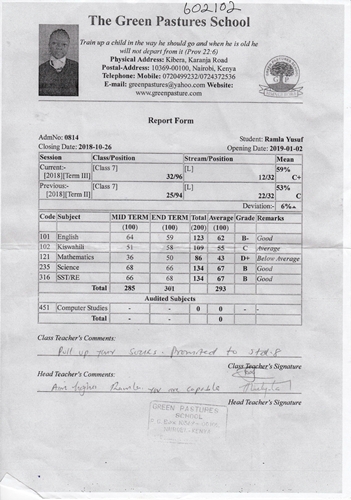 602102
The Green Pastures School
Train up a child in the way he should go and when he is old he
will not depart from it (Prov 22:6)
Physical Address: Kibera, Karanja Road
Postal-Address: 10369-00100, Nairobi, Kenya
Telephone: Mobile: 0720499232/0724372536
E-mail: greenpastures@yahoo.com Website:
www.greenpasture.com
Report Form
AdmNo: 0814 Student: Ramla Yusuf
Closing Date: 2018-10-26 Opening Date: 2019-01-02
Session Class/Position Stream/Position Mean
Current:- [Class 7] [L] 59%
[2018][Term III] 32/96 12/32 C+
Previous:- [Class 7] [L] 53%
[2018][Term II] 25/94 22/32 C
Deviation:- 6%▲
Code Subject MID TERM END TERM Total Average Grade Remarks
(100) (100) (200) (100)
101 English 64 59 123 62 B- Good
102 Kiswahili 51 58 109 55 C Average
121 Mathematics 36 50 86 43 D+ Below Average
235 Science 68 66 134 67 B Good
316 SST/RE 66 68 134 67 B Good
Total 285 301 293
Audited Subjects
451 Computer Studies - - 0 0 - -
Total - - 0
Class Teacher's Comments:
Pull up your - Promoted to std. 8
Class Teacher's Signature
Head Teacher's Comments:
Aim higher Ramla you are capable
Head Teacher's Signature
GREEN PASTURES
SCHOOL
NAIROBI - KENYA